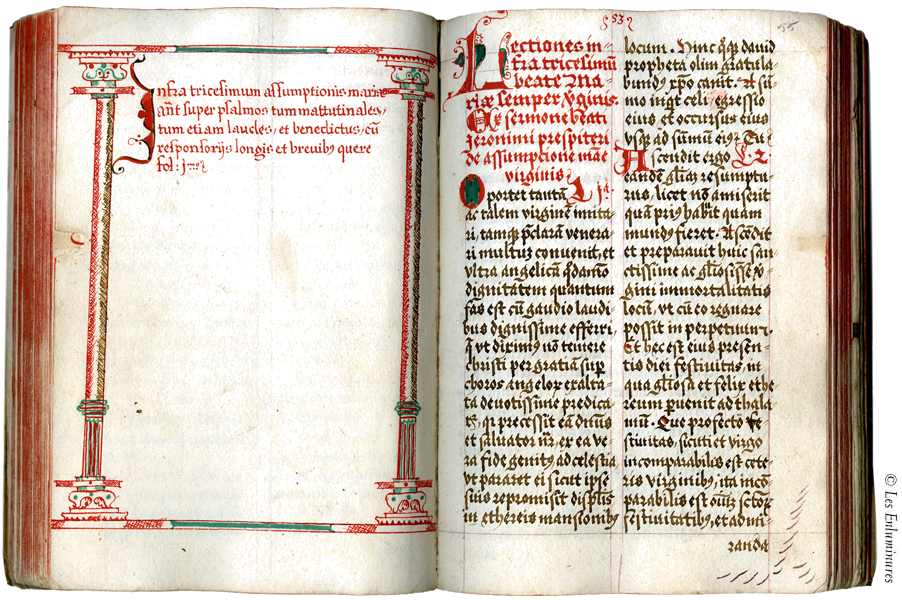 Infra tricesimum assumptionis marie
añt super psalmos tum mattutinales,
tum etiam laudes, et benedictus, cū
responsorijs longis et brevibꝫ quere
fol:
53
55
Lectiones in=
fra tricesimū
beate Ma=
riæ semper v̄ginis.
Ex sermone beati
Jeronimi prespiteri
de assumpcione mãe
virginis
Oportet tantā
ac talem virginē imita=
ri, tamqꝫ p̄clarā venera=
ri multuꝫ convenit, et
vltra angelicā qdamō
dignitatem quantum
fas est cū gaudio laudi
bus dignissime efferri,
q vt diximꝰ nō temere
christi per gratiā sup
choros angeloꝝ exalta=
ta devotissime predica=
tꝫ, qi precessit eā dn̄us
et salvator nr̄, ex ea ve=
ra fide genitꝰ ad celestia
vt pararet ei sicut ipse
suis repromisit
in ethereis mansionibꝫ
locum. Hinc qꝫ david
propheta olim gratula=
bundꝰ xp̄o canit. A sū=
mo inqt celi egressio
eius et occursus eius
vsqꝫ ad sūmum eiꝰ. Tu
Ascendit ergo L. 2.
eandē gliā resumptu=
rus, licet nō amiserit
quā priꝰ habuit quam
mundꝰ fieret. Ascēdit
et preparavit huic san=
ctissime ac gliosisse v̄=
gini immortalitatis
locū, vt cū eo regnare
possit in perpetuum.
Et hec est eius presen=
tis diei festivitas, in
qua gliosa et felix ethe
reum puenit ad thala
mū. Que profecto fe
stivitas, sicuti et virgo
incomparabilis est cete=
ris virginibꝫ, ita incō
parabilis est
festivitatibꝫ, et admi=
randa
© Les Enluminures